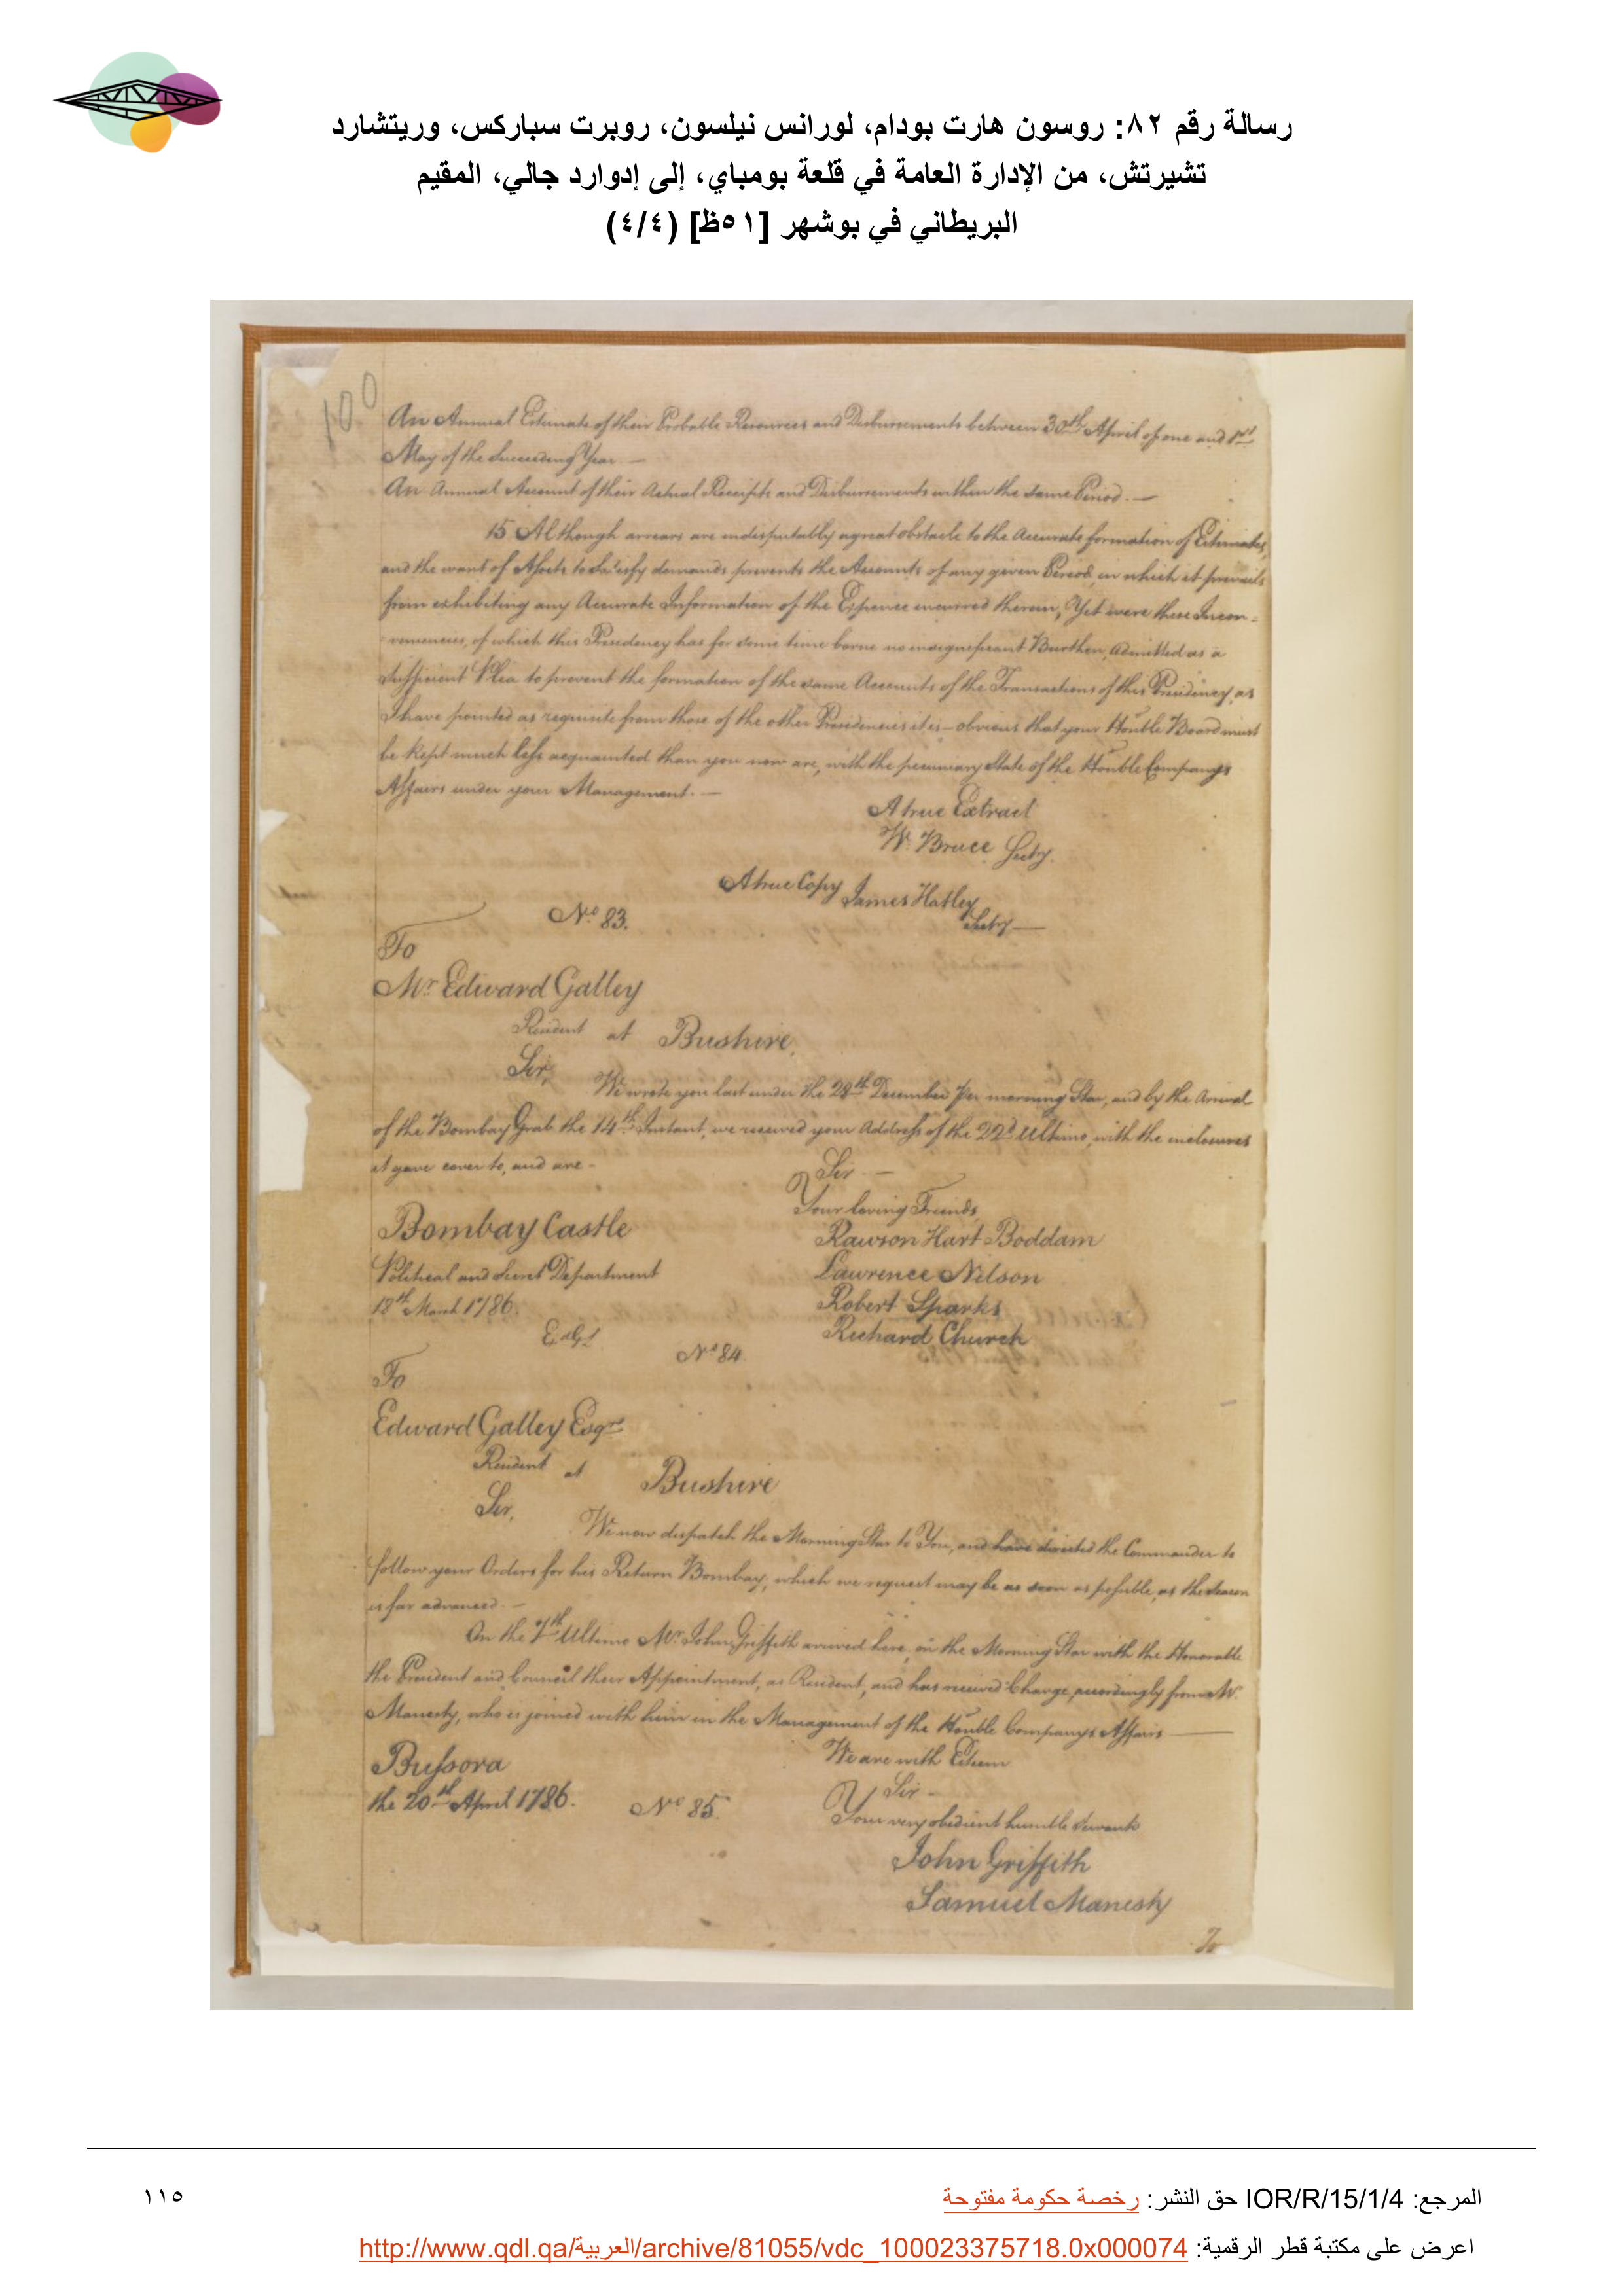 رسالة رقم ٨٢: روسون هارت بودام، لورانس نيلسون، روبرت سباركس، وريتشارد
تشيرتش، من الإدارة العامة في قلعة بومباي، إلى إدوارد جالي، المقيم
البريطاني في بوشهر [٥١ظ] (٤/٤)
100
An Annual Estimate of their Probable Resources and Disbursements between 30th April of one and 1st
May of the Succeeding Year. —
An Annual Account of their Actual Receipts and Disbursements within the same Period. —
15 Although arrears are indisputably a great obstacle to the Accurate formation of Estimates,
and the want of Assets to Satisfy demands prevents the Accounts of any given Period in which it prevails
from exhibiting any Accurate Information of the Expence incurred therein, Yet were these Incon=
=veniencies, of which this Presidency has for some time borne no insignificant Burthen, admitted as a
sufficient Plea to prevent the formation of the same Accounts of the Transactions of this Presidency, as
I have pointed as requisite from those of the other Presidencies it is obvious that your Honble Board must
be kept much less acquainted than you now are, with the pecuniary State of the Honble Companys
Affairs under your Management. —
A true Extract
W. Bruce Secty.
A true Copy James Hatley
Secty —
No 83.
To
Mr Edward Galley
Resident at Bushire,
Sir,
We wrote you last under the 29th December Per morning Star, and by the Arrival
of the Bombay Grab the 14th Instant, we received your Address of the 22d Ultimo, with the inclosures
it gave cover to, and are -
Sir —
Your loving Friends
Bombay Castle
Rawson Hart Boddam
Political and Secret Department
Lawrence Nilson
18th March 1786.
Robert Sparks
Richard Church
No 84.
To
Edward Galley Esqre
Resident at Bushire
Sir,
We now dispatch the Morning Star to You, and have directed the Commander to
follow your Orders for his Return Bombay, which we request may be as soon as possible, as the season
is far advanced. —
On the 7th Ultimo Mr John Griffith arrived here, in the Morning Star with the Honorable
the President and Council their Appointment, as Resident, and has received Charge accordingly from Mr.
Manesty, who is joined with him in the Management of the Honble Companys Affairs —
Bussora
We are with Esteem
the 20th April 1786.
Sir -
No 85.
Your very obedient humble Servants
John Griffith
Samuel Manesty
To
المرجع: IOR/R/15/1/4 حق النشر: رخصة حكومة مفتوحة
١١٥
اعرض على مكتبة قطر الرقمية: http://www.qdl.qa/العربية/archive/81055/vdc_100023375718.0x000074